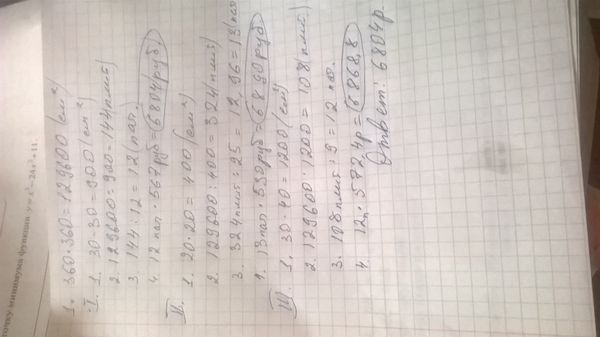 точку минимума функции y = x³ − 24x² + 11.
1. 360·360 = 129600 (см²)
I. 1. 30·30 = 900 (см²)
2. 129600 : 900 = 144 плит
3. 144 : 12 = 12 (пач.
4. 12 пач · 567 руб = 6804 руб.
II. 1. 20·20 = 400 (см²)
2. 129600 : 400 = 324 (плит)
3. 324 плит : 25 = 12,96 = 13 (пач
4. 13 пач · 530 руб = 6890 руб
III 1. 30·40 = 1200 (см²)
2. 129600 : 1200 = 108 (плит)
3. 108 плит : 9 = 12 пач.
4. 12п · 572,4р = 6868,8
Ответ: 6804 р.